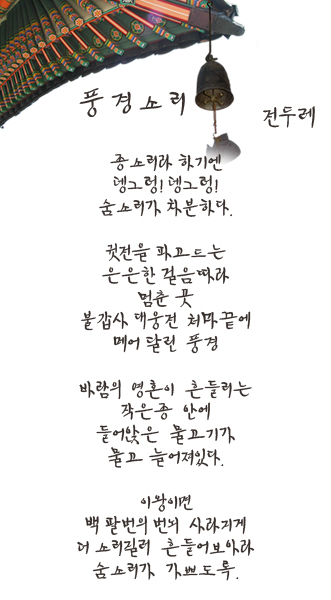 풍경소리
전두레
종소리라 하기엔
뎅그렁! 뎅그렁!
숨소리가 차분하다.
귓전을 파고드는
은은한 걸음따라
멈춘 곳
불갑사 대웅전 처마끝에
메어 달린 풍경
바람의 영혼이 흔들리는
작은종 안에
들어앉은 물고기가
물고 늘어져있다.
이왕이면
백팔번의 번뇌 사라지게
더 소리질러 흔들어보아라
숨소리가 가쁘도록.